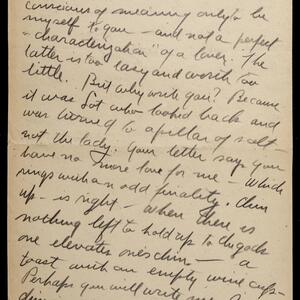 conscious of meaning only to be
myself to you - and not a perfect
"characterization" of a lover. The
latter is too easy and worth too
little. But why write you? Because
it was Lot who looked back and
was turned to a pillar of salt -
not the lady. Your letter says you
have no more love for me - which
rings with an odd finality. Chin
up - is right - when there is
nothing left to hold up to the gods
one elevates ones chin - a
toast with an empty wine cup -
Perhaps you will write me